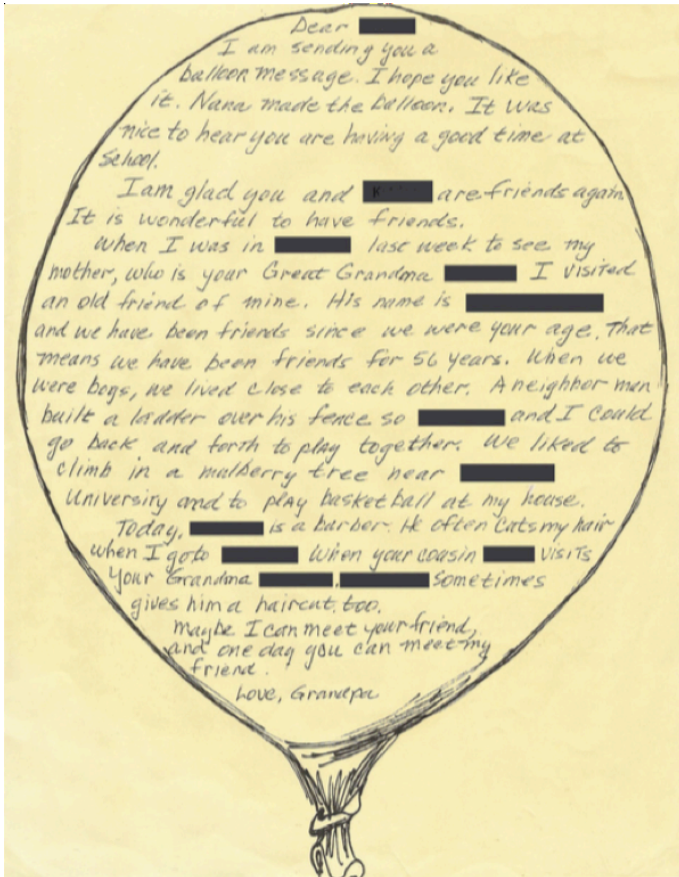 Dear
I am sending you a
balloon message. I hope you like
it. Nana made the balloon. It was
nice to hear you are having a good time at
School.
I am glad you and are friends again
It is wonderful to have friends.
When I was in last week to see my
mother, who is your Great Grandma I visited
an old friend of mine. His name is
and we have been friends since we were your age. That
means we have been friends for 56 years. When we
were boys, we lived close to each other. A neighbor man
built a ladder over his fence so and I could
go back and forth to play together. We liked to
climb in a mulberry tree near
University and to play basketball at my house.
Today, is a barber. He often cuts my hair
when I go to When your cousin visits
your Grandma , Sometimes
gives him a haircut, too.
maybe I can meet your friend,
and one day you can meet my
friend.
Love, Grandpa